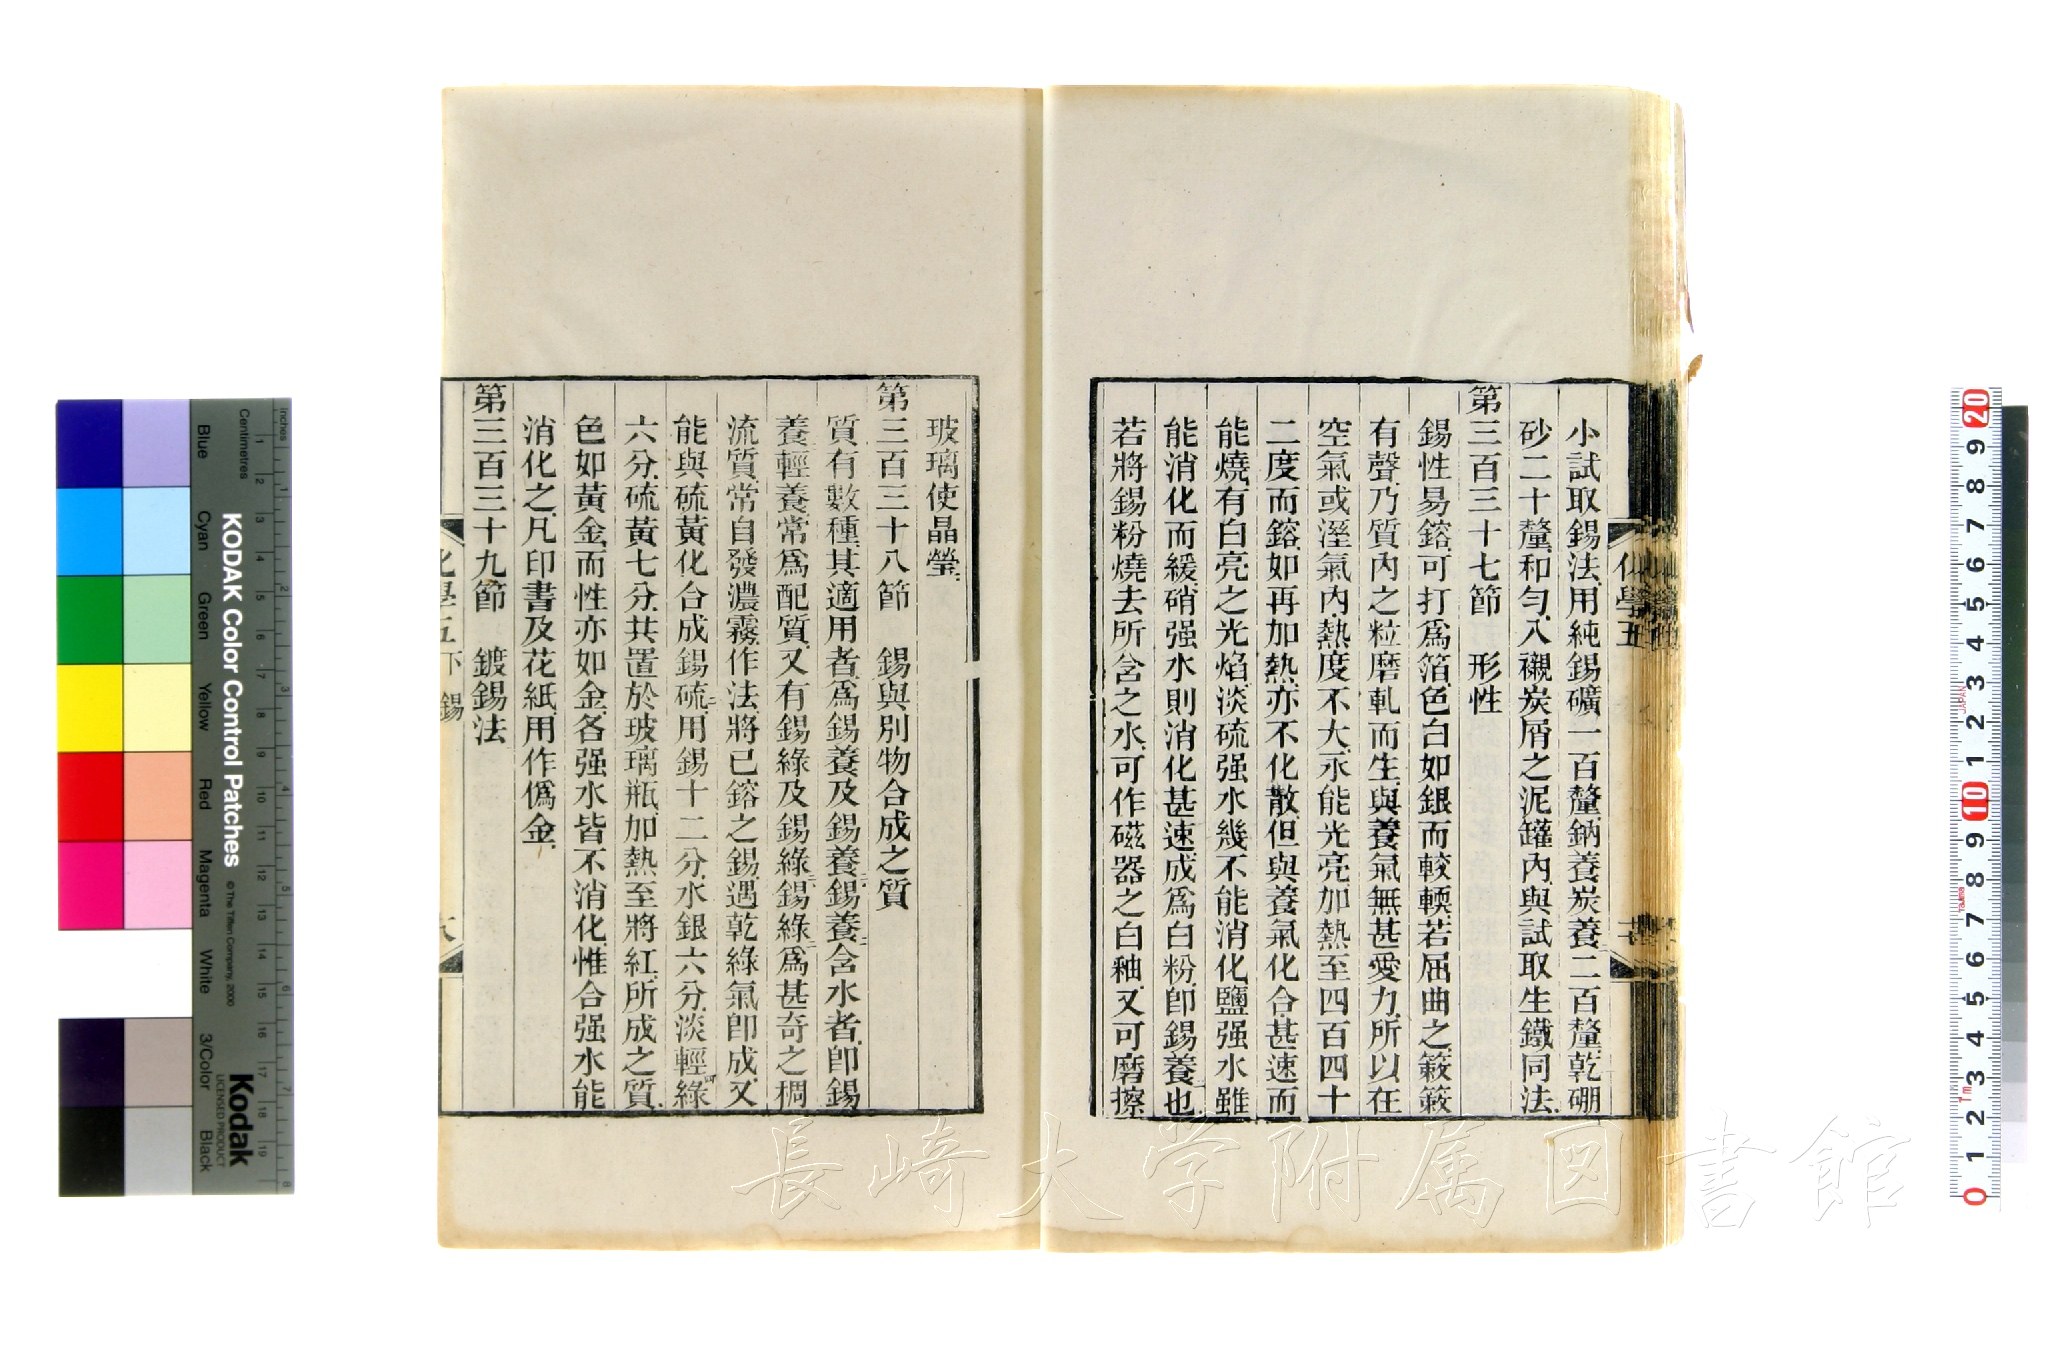 小試取錫法、用純錫礦一百釐、鈉養炭養二百釐、乾硼
砂二十釐、和勻、入襯炭屑之泥罐內、與試取生鐵同法、
第三百三十七節　形性
錫性易鎔、可打爲箔、色白如銀而較輭、若屈曲之、簌簌
有聲、乃質內之粒磨軋而生、與養氣無甚愛力、所以在
空氣或溼氣內、熱度不大、永能光亮、加熱至四百四十
二度而鎔、如再加熱、亦不化散、但與養氣化合甚速、而
能燒、有白亮之光焰、淡硫强水幾不能消化、鹽强水雖
能消化而緩、硝强水則消化甚速、成爲白粉、卽錫養也、
若將錫粉燒去所含之水、可作磁器之白釉、又可磨擦
玻璃使晶瑩、
第三百三十八節　錫與別物合成之質
質有數種、其適用者、爲錫養及錫養二、錫養二含水者、卽錫
養輕養、常爲配質、又有錫綠及錫綠二、錫綠二、爲甚奇之稠
流質、常自發濃霧、作法、將已鎔之錫、遇乾綠氣卽成、又
能與硫黃化合成錫硫二、用錫十二分、水銀六分、淡輕四綠
六分、硫黃七分、共置於玻璃瓶、加熱至將紅、所成之質、
色如黃金、而性亦如金、各强水皆不消化、惟合强水能
消化之、凡印書及花紙、用作僞金、
第三百三十九節　鍍錫法
化學五
化學五下　錫
KODAK Color Control Patches
© The Tiffen Company, 2000
Kodak
LICENSED PRODUCT
Inches
Centimetres
Blue
Cyan
Green
Yellow
Red
Magenta
White
3/Color
Black
長崎大学附属図書館